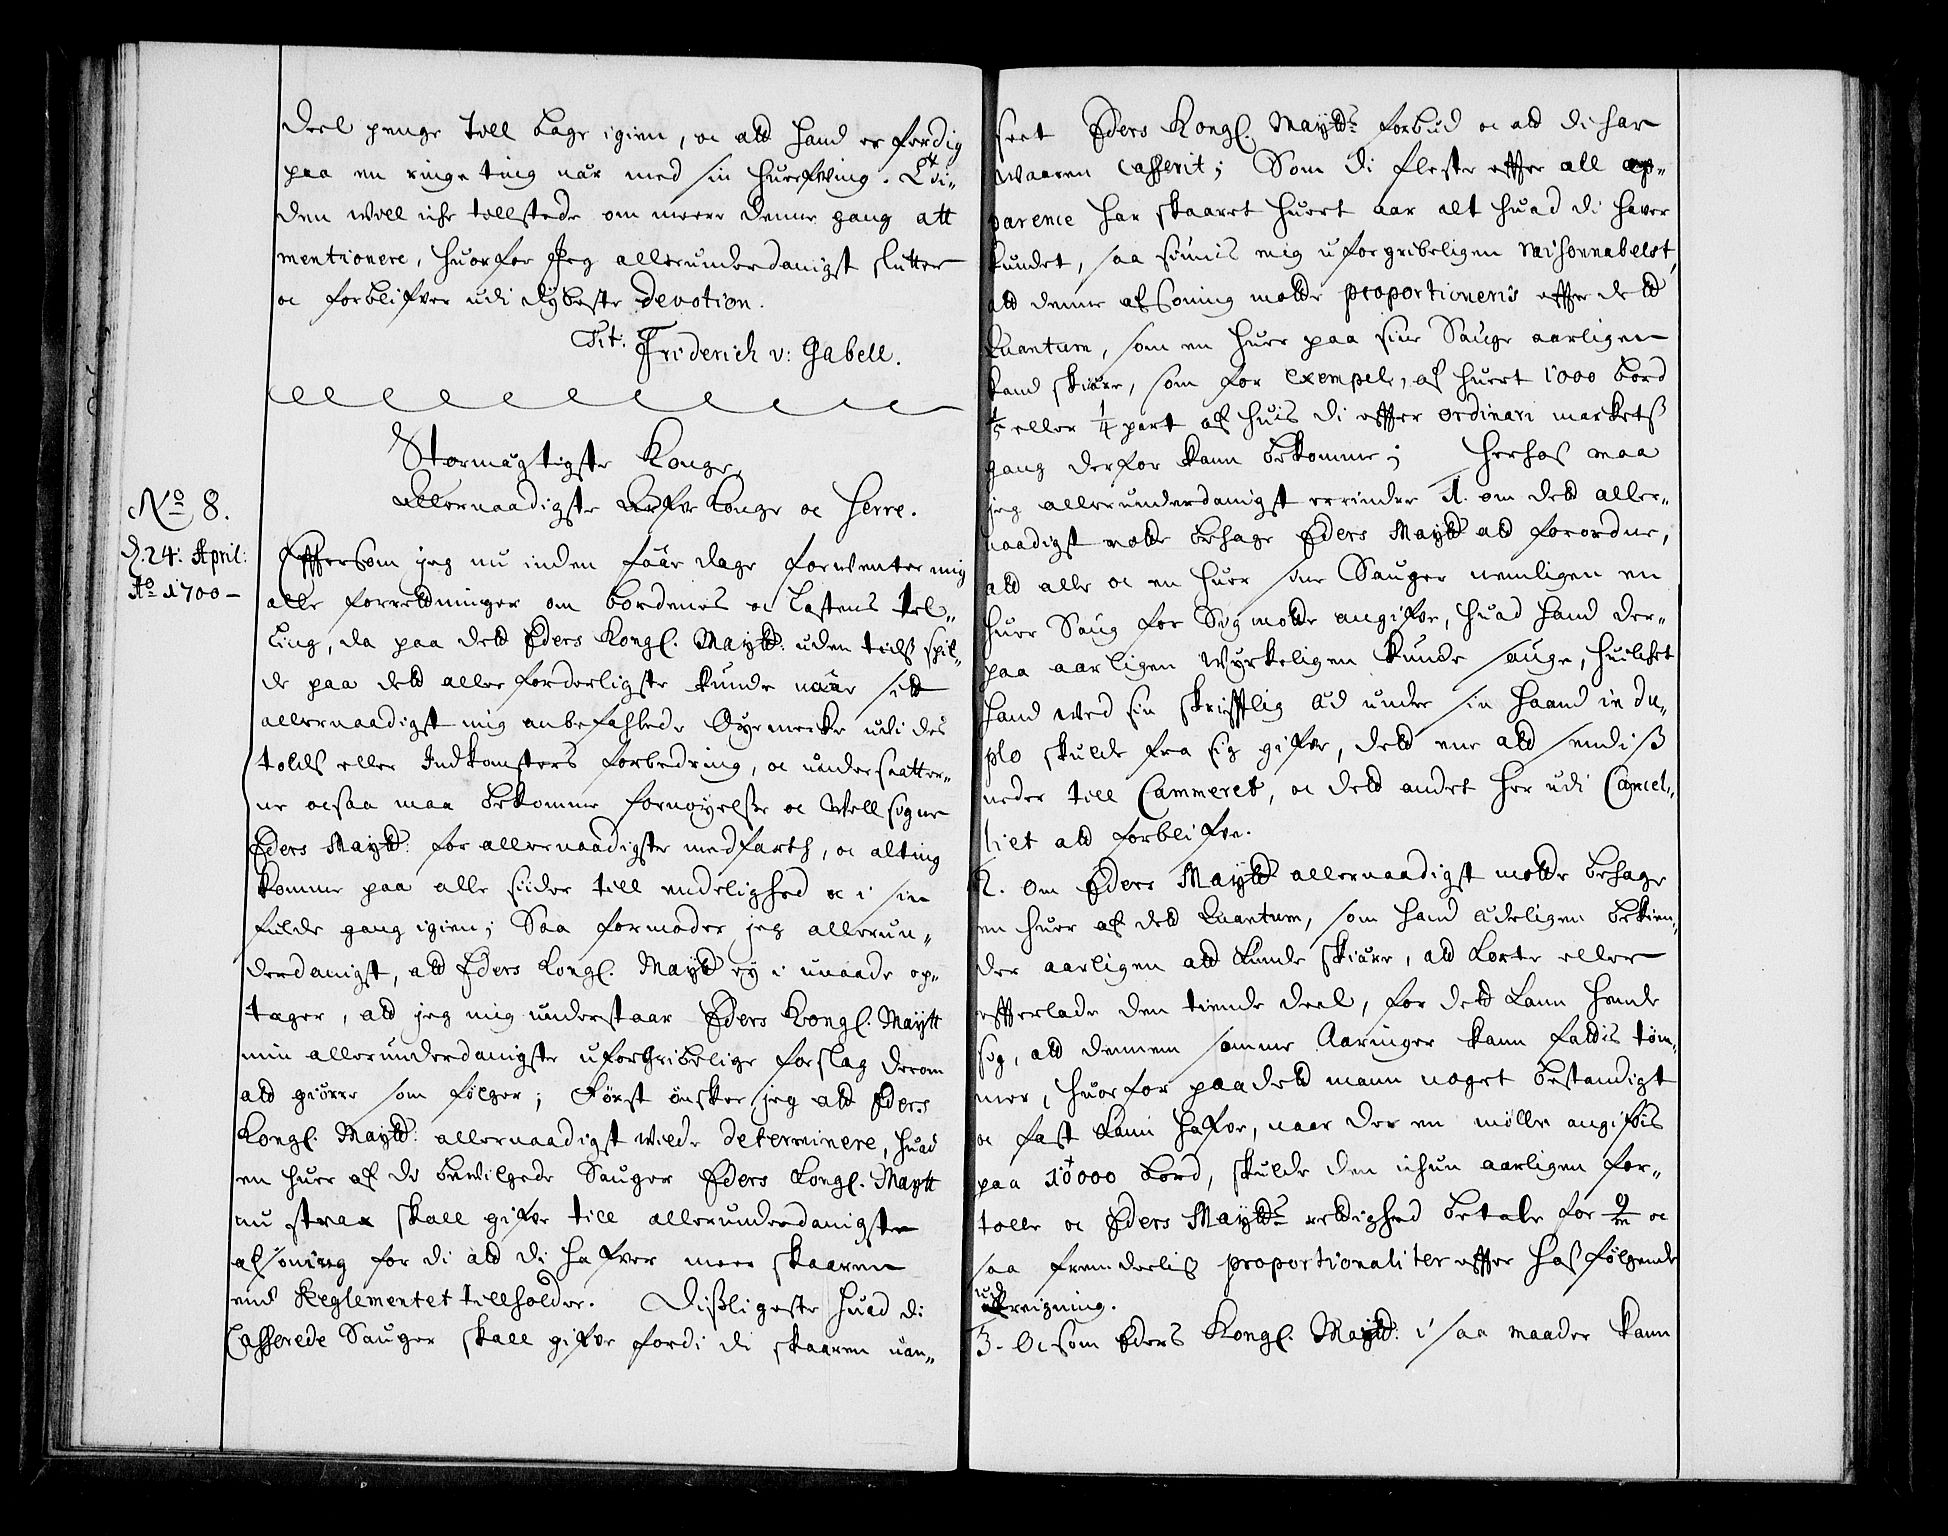 deel penge Toll bage igien, oc att hand er ferdig
paa en ringe ting nær med sin huerfving.
den woll icke tollstede om meere denne gang att
mentionere, huorfor Jeg allerunderdanigst slutter
oc forblifver udi dybeste Devotion.
Tit. Friderich v: Gabell.
Stormægtigste Konge,
Allernaadigste Arfve Konge oc Herre.
No 8.
d. 24: April:
Ao 1700 -
Effersom jeg nu inden fåar dage forwenter mig
alle forretninger om bordenes oc Lastens tel-
ling, da paa dett Eders Kongl. Maytt: uden tids spil-
de paa dett aller forderligste kunde nåår sitt
allernaadigst mig anbefahlede Øyemercke udi des
tolds eller Indkomsters forbedring, oc undersaatter-
ne ocsaa maa bekomme fornøyelse oc Wellsigne
Eders Maytt: for allernaadigste medfarth, oc alting
komme paa alle siider till endelighed oc i sin
fulde gang igien; Saa formoder jeg allerun-
derdanigst, att Eders Kongl. Maytt ey i unaade op-
tager, att jeg mig understaar Eders Kongl. Maytt
min allerunderdanigste uforgribelige forslag derom
att giørre som følger; Først ønsker jeg att Eders
Kongl. Maytt: allernaadigst wilde determinere, huad
en huer af de bewilgede Sauger Eders Kongl. Maytt
nu strax skall gifve till allerunderdanigste
afsoning for di att di hafver meer skaaren
end Reglementet tillholder. Disligeste huad di
Casserede Sauger skall gifve fordi di skaaren uan-
seet Eders Kongl. Maytts forbud oc att di har
waaren Casserit; Som di fleste effter all ap-
parence har skaaret huert aar alt huad di haver
kundet, saa siunis mig uforgribeligen raisonnabelst,
att denne afsoning motte proportioneris effter dett
Quantum, som en huer paa sine Sauge aarligen
kand skiære, som for Exempel, af huert 1000 bord
1/5 eller 1/4 part af huis di effter ordinari marketz
gang derfor kann bekomme; Herhos maa
jeg allerunderdanigst errindre 1. om dett aller-
naadigst motte behage Eders Maytt att forordne,
att alle oc en huer sine Sauger nemligen en
huer Saug for Sig motte angifve, huad hand der-
paa aarligen Wyrkeligen kunde sauge, huilket
hand wed sin skrifftlig Æd under sin haand in du-
plo skulde fra sig gifve, dett ene att sendis
neder till Cammeret, oc dett andet her udi Cancel-
liet att forblifve.
2. Om Eders Maytt allernaadigst motte behage
en huer af dett Quantum, som hand Ædeligen bekien-
der aarligen att kunde skiære, att korte eller
effterlade den tiende deel, for dett kann hende
sig, att dennem somme Aaringer kann faldis tøm-
mer, huorfor paa dett mann noget bestandigt
oc fast kann hafve, naar der en mølle angifvis
paa 10000 bord, skulde den ichun aarligen for-
tolle oc Eders Maytts rettighed betale for 9/m oc
saa fremdeelis proportionaliter effter hosfølgende
udreigning.
3. Ocsom Eders Kongl. Maytt: i saa maader kann